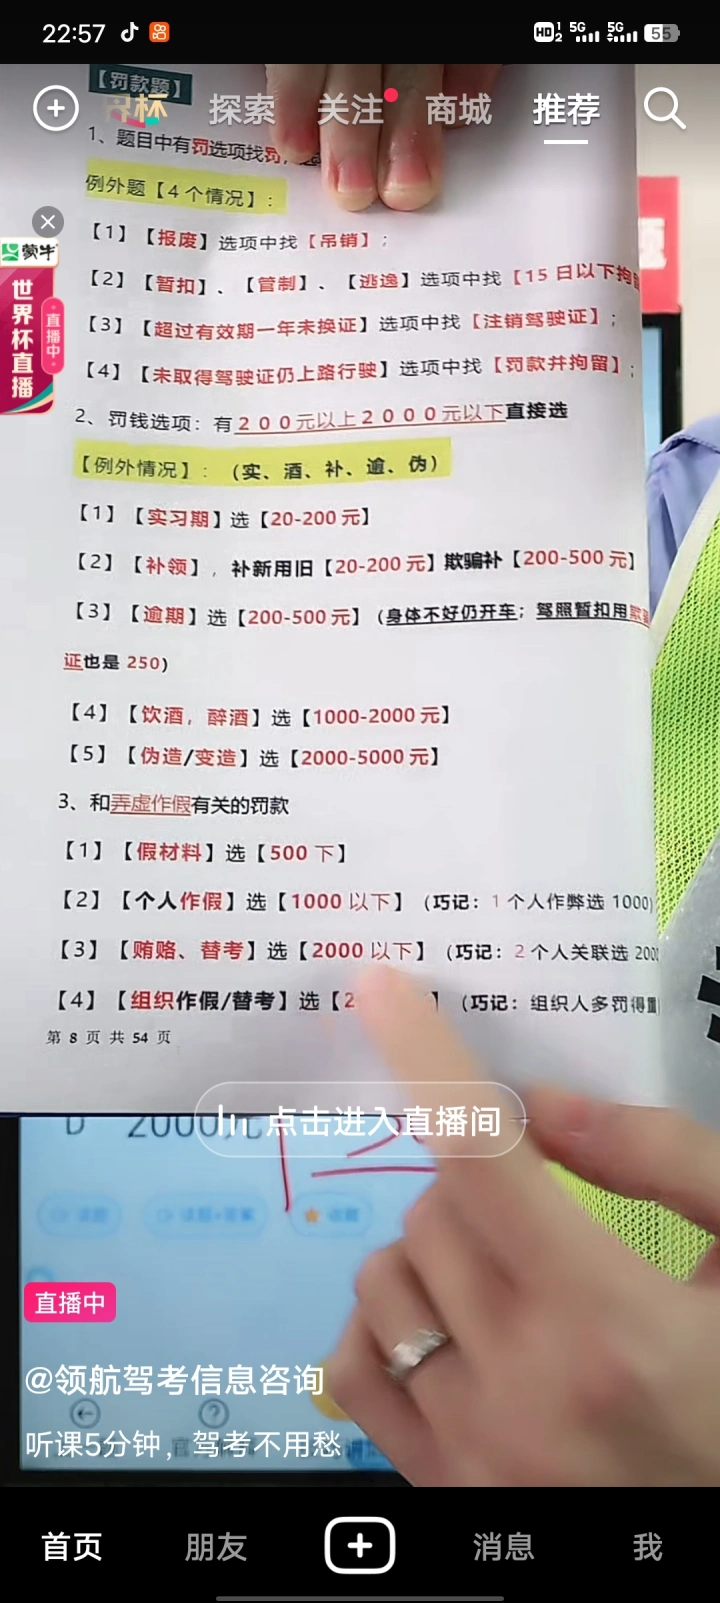 22:57
HD 1 2 5G 5G 55
【罚款题】
界杯 探索 关注 商城 推荐
1、题目中有罚选项找罚，
例外题【4个情况】:
【1】【报废】选项中找【吊销】;
【2】【暂扣】、【管制】、【逃逸】选项中找【15日以下拘
【3】【超过有效期一年未换证】选项中找【注销驾驶证】;
【4】【未取得驾驶证仍上路行驶】选项中找【罚款并拘留】;
蒙牛
世界杯直播
直播中
2、罚钱选项：有200元以上2000元以下直接选
【例外情况】:（实、酒、补、逾、伪）
【1】【实习期】选【20-200元】
【2】【补领】, 补新用旧【20-200元】欺骗补【200-500元】
【3】【逾期】选【200-500元】(身体不好仍开车；驾照暂扣用
证也是 250)
【4】【饮酒，醉酒】选【1000-2000元】
【5】【伪造/变造】选【2000-5000元】
3、和弄虚作假有关的罚款
【1】【假材料】选【500下】
【2】【个人作假】选【1000以下】(巧记：1个人作弊选1000)
【3】【贿赂、替考】选【2000以下】(巧记：2个人关联选200
【4】【组织作假/替考】选【2 】(巧记：组织人多罚得重
第 8 页 共 54 页
D 2000元
点击进入直播间
收藏
直播中
@领航驾考信息咨询
听课5分钟，驾考不用愁
首页 朋友 消息 我